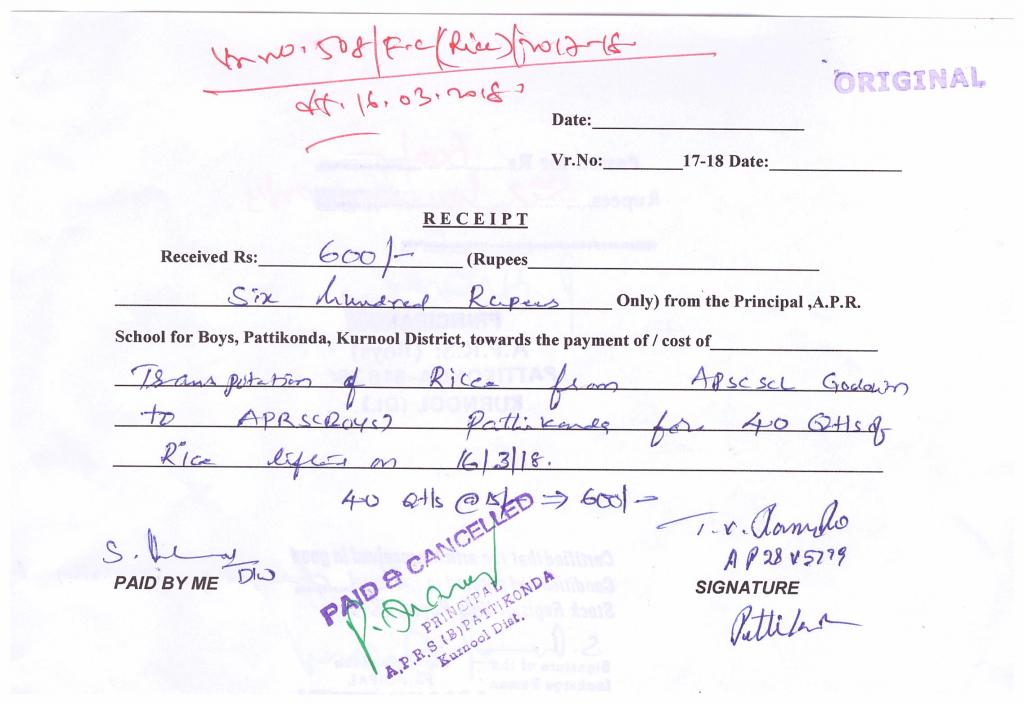 Vr no. 508/F.C(Rice)/2017-18
dt. 16.03.2018
ORIGINAL
Date:
Vr.No: 17-18 Date:
RECEIPT
Received Rs: 600/- (Rupees
Six hundred Rupees Only) from the Principal ,A.P.R.
School for Boys, Pattikonda, Kurnool District, towards the payment of / cost of
Transpotation of Rice from APSCSCL Godown
to APRS(Boys) Pattikonda for 40 Qtls of
Rice lifted on 16/3/18.
40 Qtls @ 15/- ⇒ 600/-
S.
D/W
PAID BY ME
PAID & CANCELLED
PRINCIPAL
A.P.R.S (B) PATTIKONDA
Kurnool Dist.
T.V.
AP28V5779
SIGNATURE